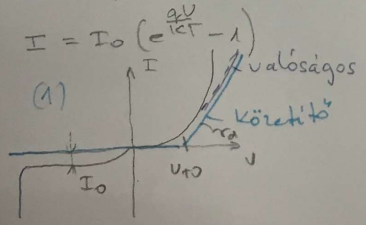 I = I₀ (e^(qU/KT) - 1)
I
valóságos
(1)
közelítő
r_d
I₀
U_T0
U